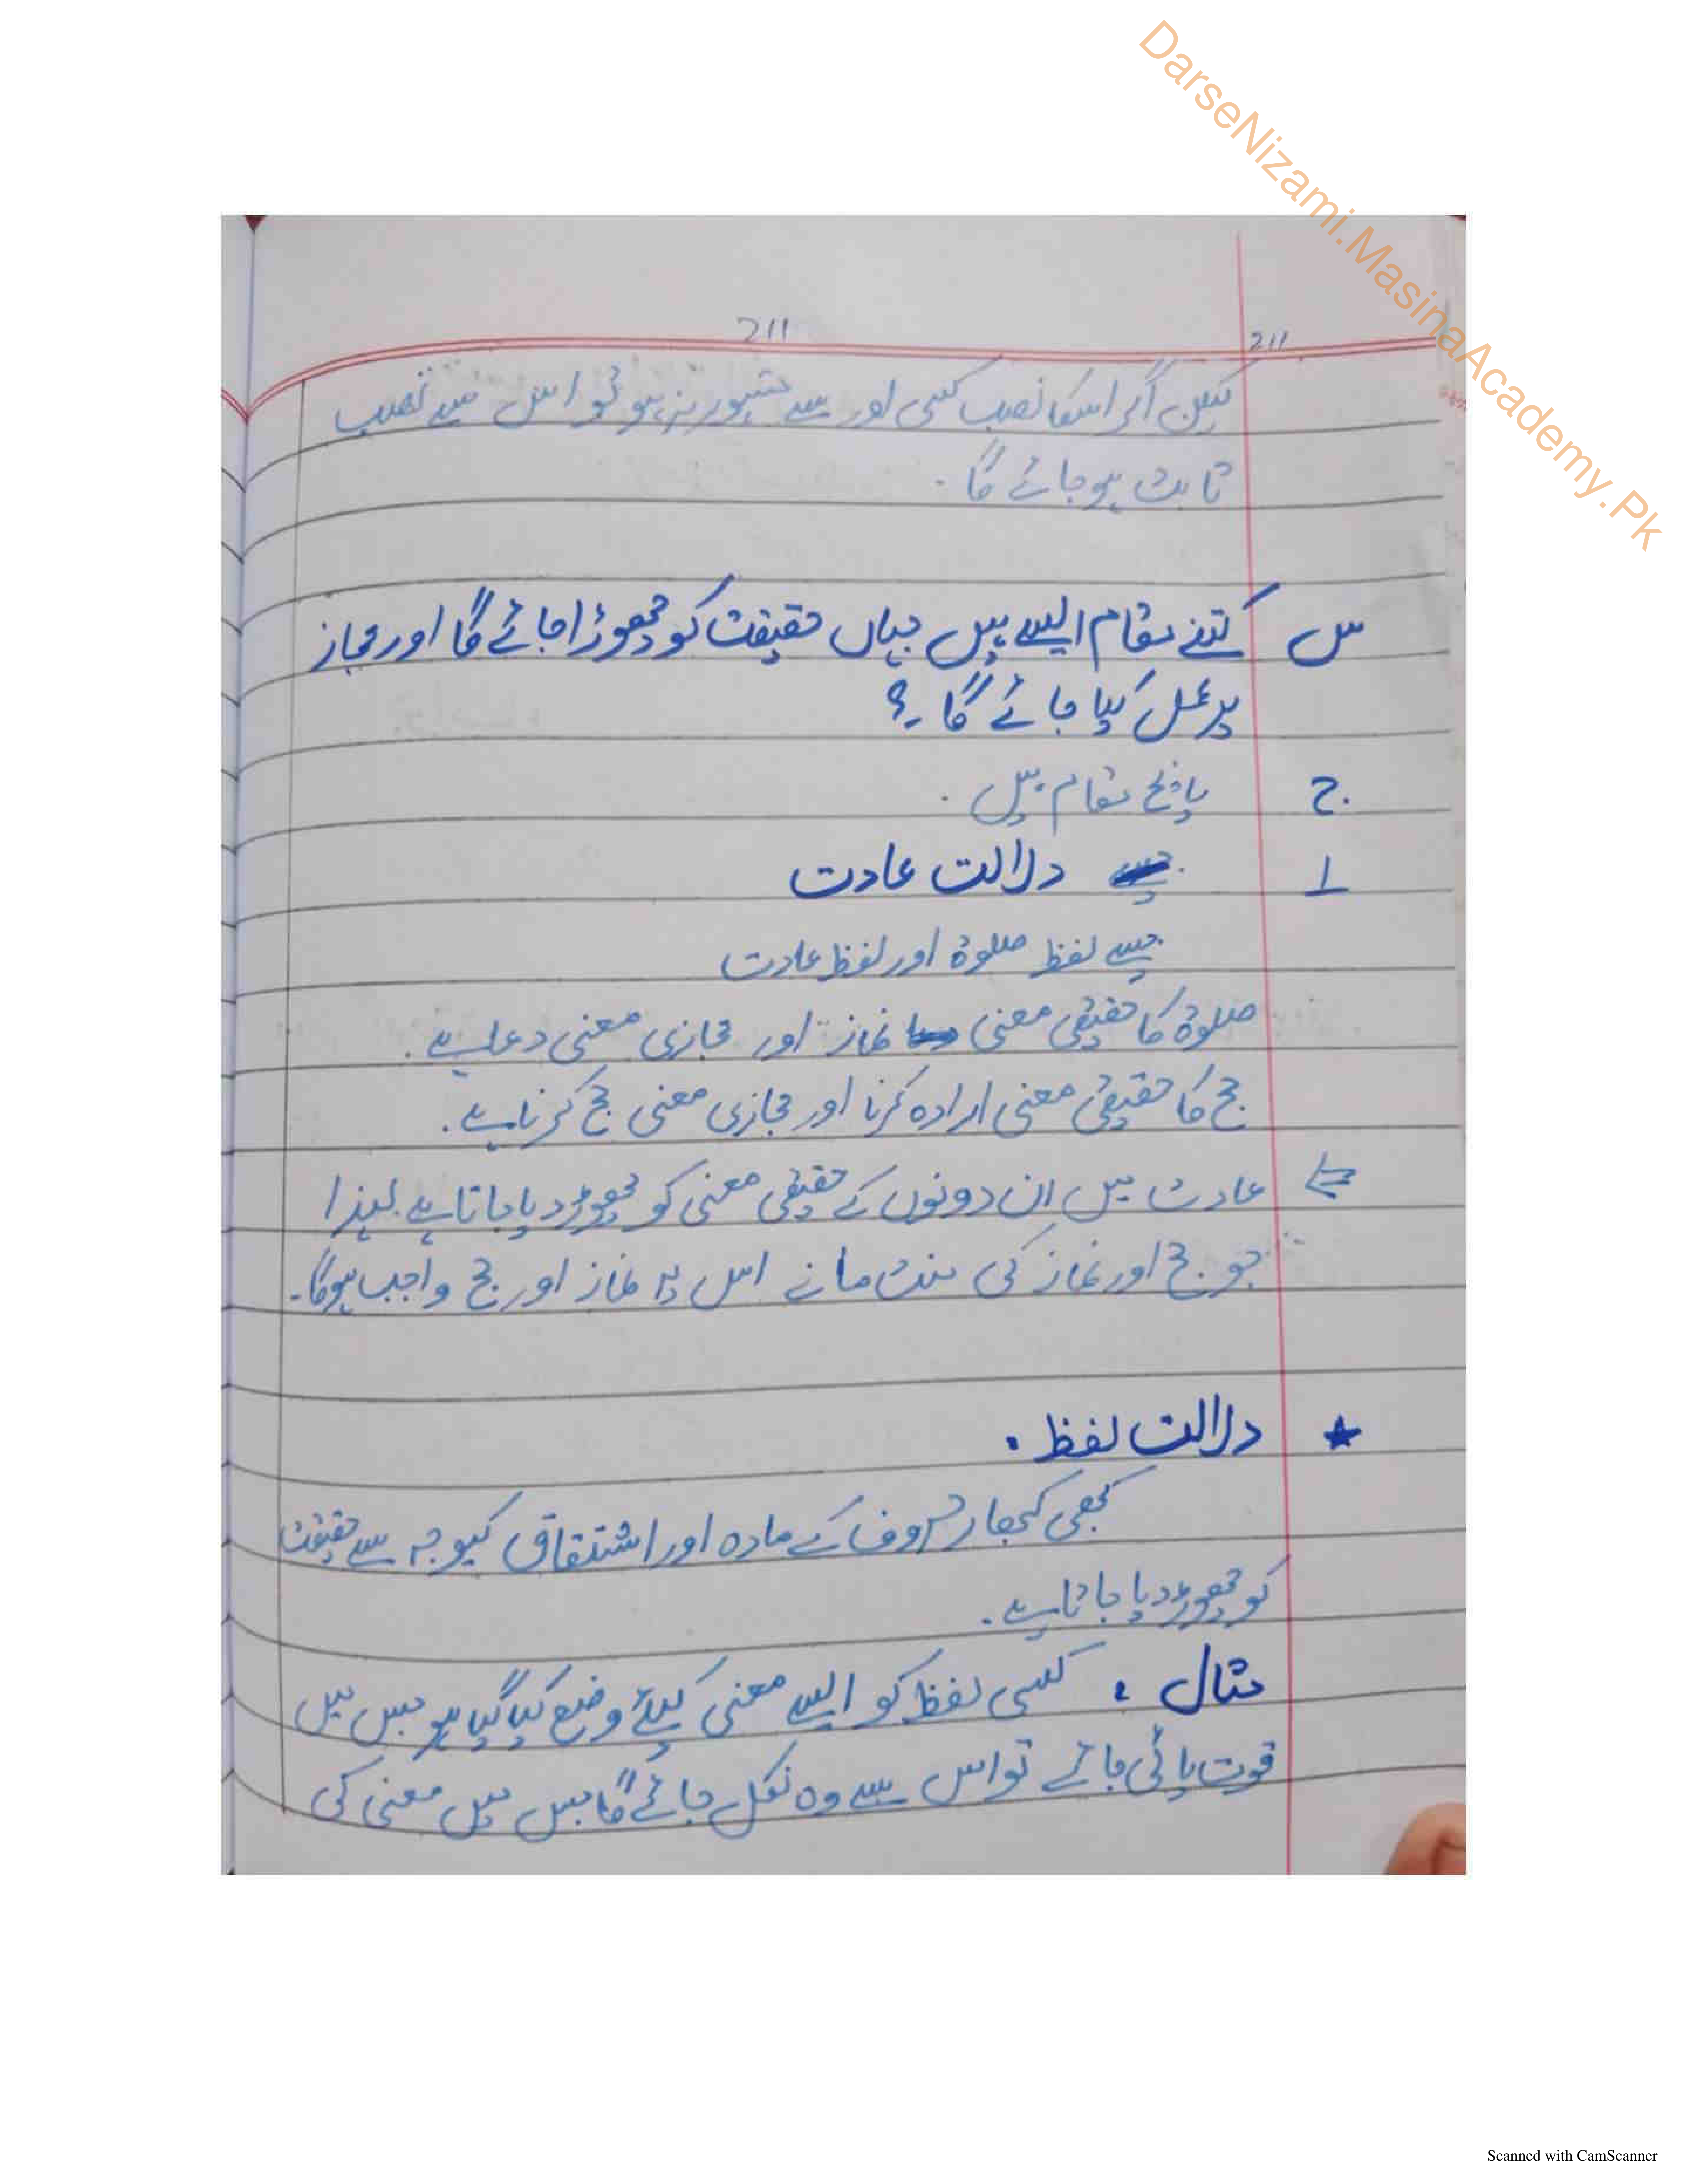 DarseNizami.MasinaAcademy.Pk
211
211
لیکن اگر اسکا نصب کسی اور سے مشہور نہ ہو تو اس سے نصب
ثابت ہو جائے گا۔
س کتنے مقام ایسے ہیں جہاں حقیقت کو چھوڑا جائے گا اور مجاز
پر عمل کیا جائے گا۔؟
ج پانچ مقام ہیں۔
1 دلالت عادت
جیسے لفظ صلوۃ اور لفظ عادت
صلوۃ کا حقیقی معنی نماز اور مجازی معنی دعا ہے۔
حج کا حقیقی معنی ارادہ کرنا اور مجازی معنی حج کرنا ہے۔
⇐ عادت میں ان دونوں کے حقیقی معنی کو چھوڑ دیا جاتا ہے لہذا
جو حج اور نماز کی منت مانے اس پر نماز اور حج واجب ہوگا۔
★ دلالت لفظ۔
کبھی کبھار حروف کے مادہ اور اشتقاق کیوجہ سے حقیقت
کو چھوڑ دیا جاتا ہے۔
مثال : کسی لفظ کو ایسے معنی کیلئے وضع کیا گیا ہو جس میں
قوت پائی جائے تو اس سے وہ نکل جائے گا جس میں معنی کی
Scanned with CamScanner